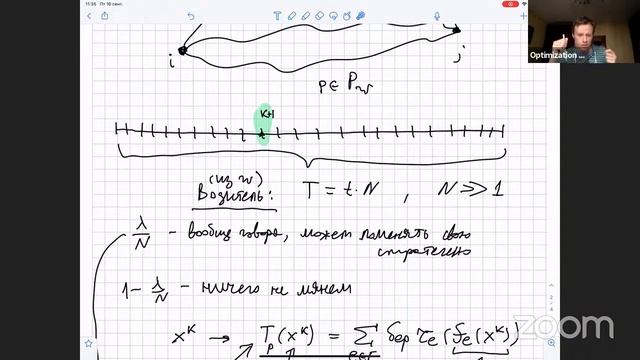 11:35 Пт 10 сент.
Optimization ...
i
j
p ∈ P_w
к+1
(из w)
Водитель: T = t·N , N ≫ 1
λ/N - вообще говоря, может поменять свою
стратегию
1 - λ/N - ничего не меняем
x^k → T_p(x^k) = Σ δ_ep τ_e(f_e(x^k))
zoom